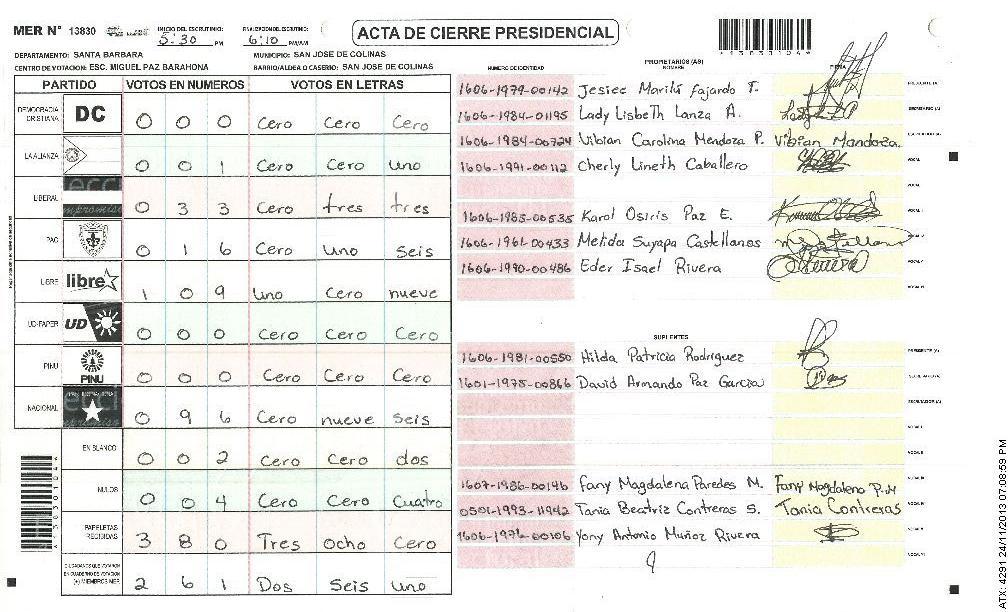 MER N° 13830 INICIO DEL ESCRUTINIO: 5:30 PM FINALIZACION DEL ESCRUTINIO: 6:10 PM/AM
ACTA DE CIERRE PRESIDENCIAL
DEPARTAMENTO: SANTA BARBARA MUNICIPIO: SAN JOSE DE COLINAS
CENTRO DE VOTACION: ESC. MIGUEL PAZ BARAHONA BARRIO/ALDEA O CASERIO: SAN JOSE DE COLINAS
PARTIDO VOTOS EN NUMEROS VOTOS EN LETRAS
DEMOCRACIA CRISTIANA DC 0 0 0 Cero Cero Cero
LA ALIANZA 0 0 1 Cero Cero uno
LIBERAL 0 3 3 Cero tres tres
PAC 0 1 6 Cero Uno Seis
LIBRE libre 1 0 9 Uno Cero nueve
UD-FAPER UD 0 0 0 Cero Cero Cero
PINU PINU 0 0 0 Cero Cero Cero
NACIONAL 0 9 6 Cero nueve Seis
EN BLANCO 0 0 2 Cero Cero dos
NULOS 0 0 4 Cero Cero Cuatro
PAPELETAS RECIBIDAS 3 8 0 Tres ocho Cero
CIUDADANOS QUE VOTARON EN CUADERNO DE VOTACION (+) MIEMBROS MER 2 6 1 Dos Seis Uno
NUMERO DE IDENTIDAD PROPIETARIOS (AS) NOMBRE FIRMA
1606-1979-00142 Jesiec Marilú Fajardo F. PRESIDENTE (A)
1606-1984-01195 Lady Lisbeth Lanza A. SECRETARIO (A)
1606-1984-00724 Vibian Carolina Mendoza P. Vibian Mendoza.
1606-1991-00112 Cherly Lineth Caballero VOCAL
VOCAL
1606-1985-00535 Karol Osiris Paz E. VOCAL
1606-1961-00433 Melida Suyapa Castellanos VOCAL
1606-1990-00486 Eder Isael Rivera VOCAL
SUPLENTES
1606-1981-00550 Hilda Patricia Rodriguez PRESIDENTE (A)
1601-1975-00866 David Armando Paz Garcia SECRETARIO (A)
ESCRUTADOR (A)
1607-1986-00146 Fany Magdalena Paredes M. Fany Magdalena P.M
0501-1993-11942 Tania Beatriz Contreras S. Tania Contreras
1606-1976-00106 Yony Antonio Muñoz Rivera
ATX: 4291 24/11/2013 07:08:59 PM